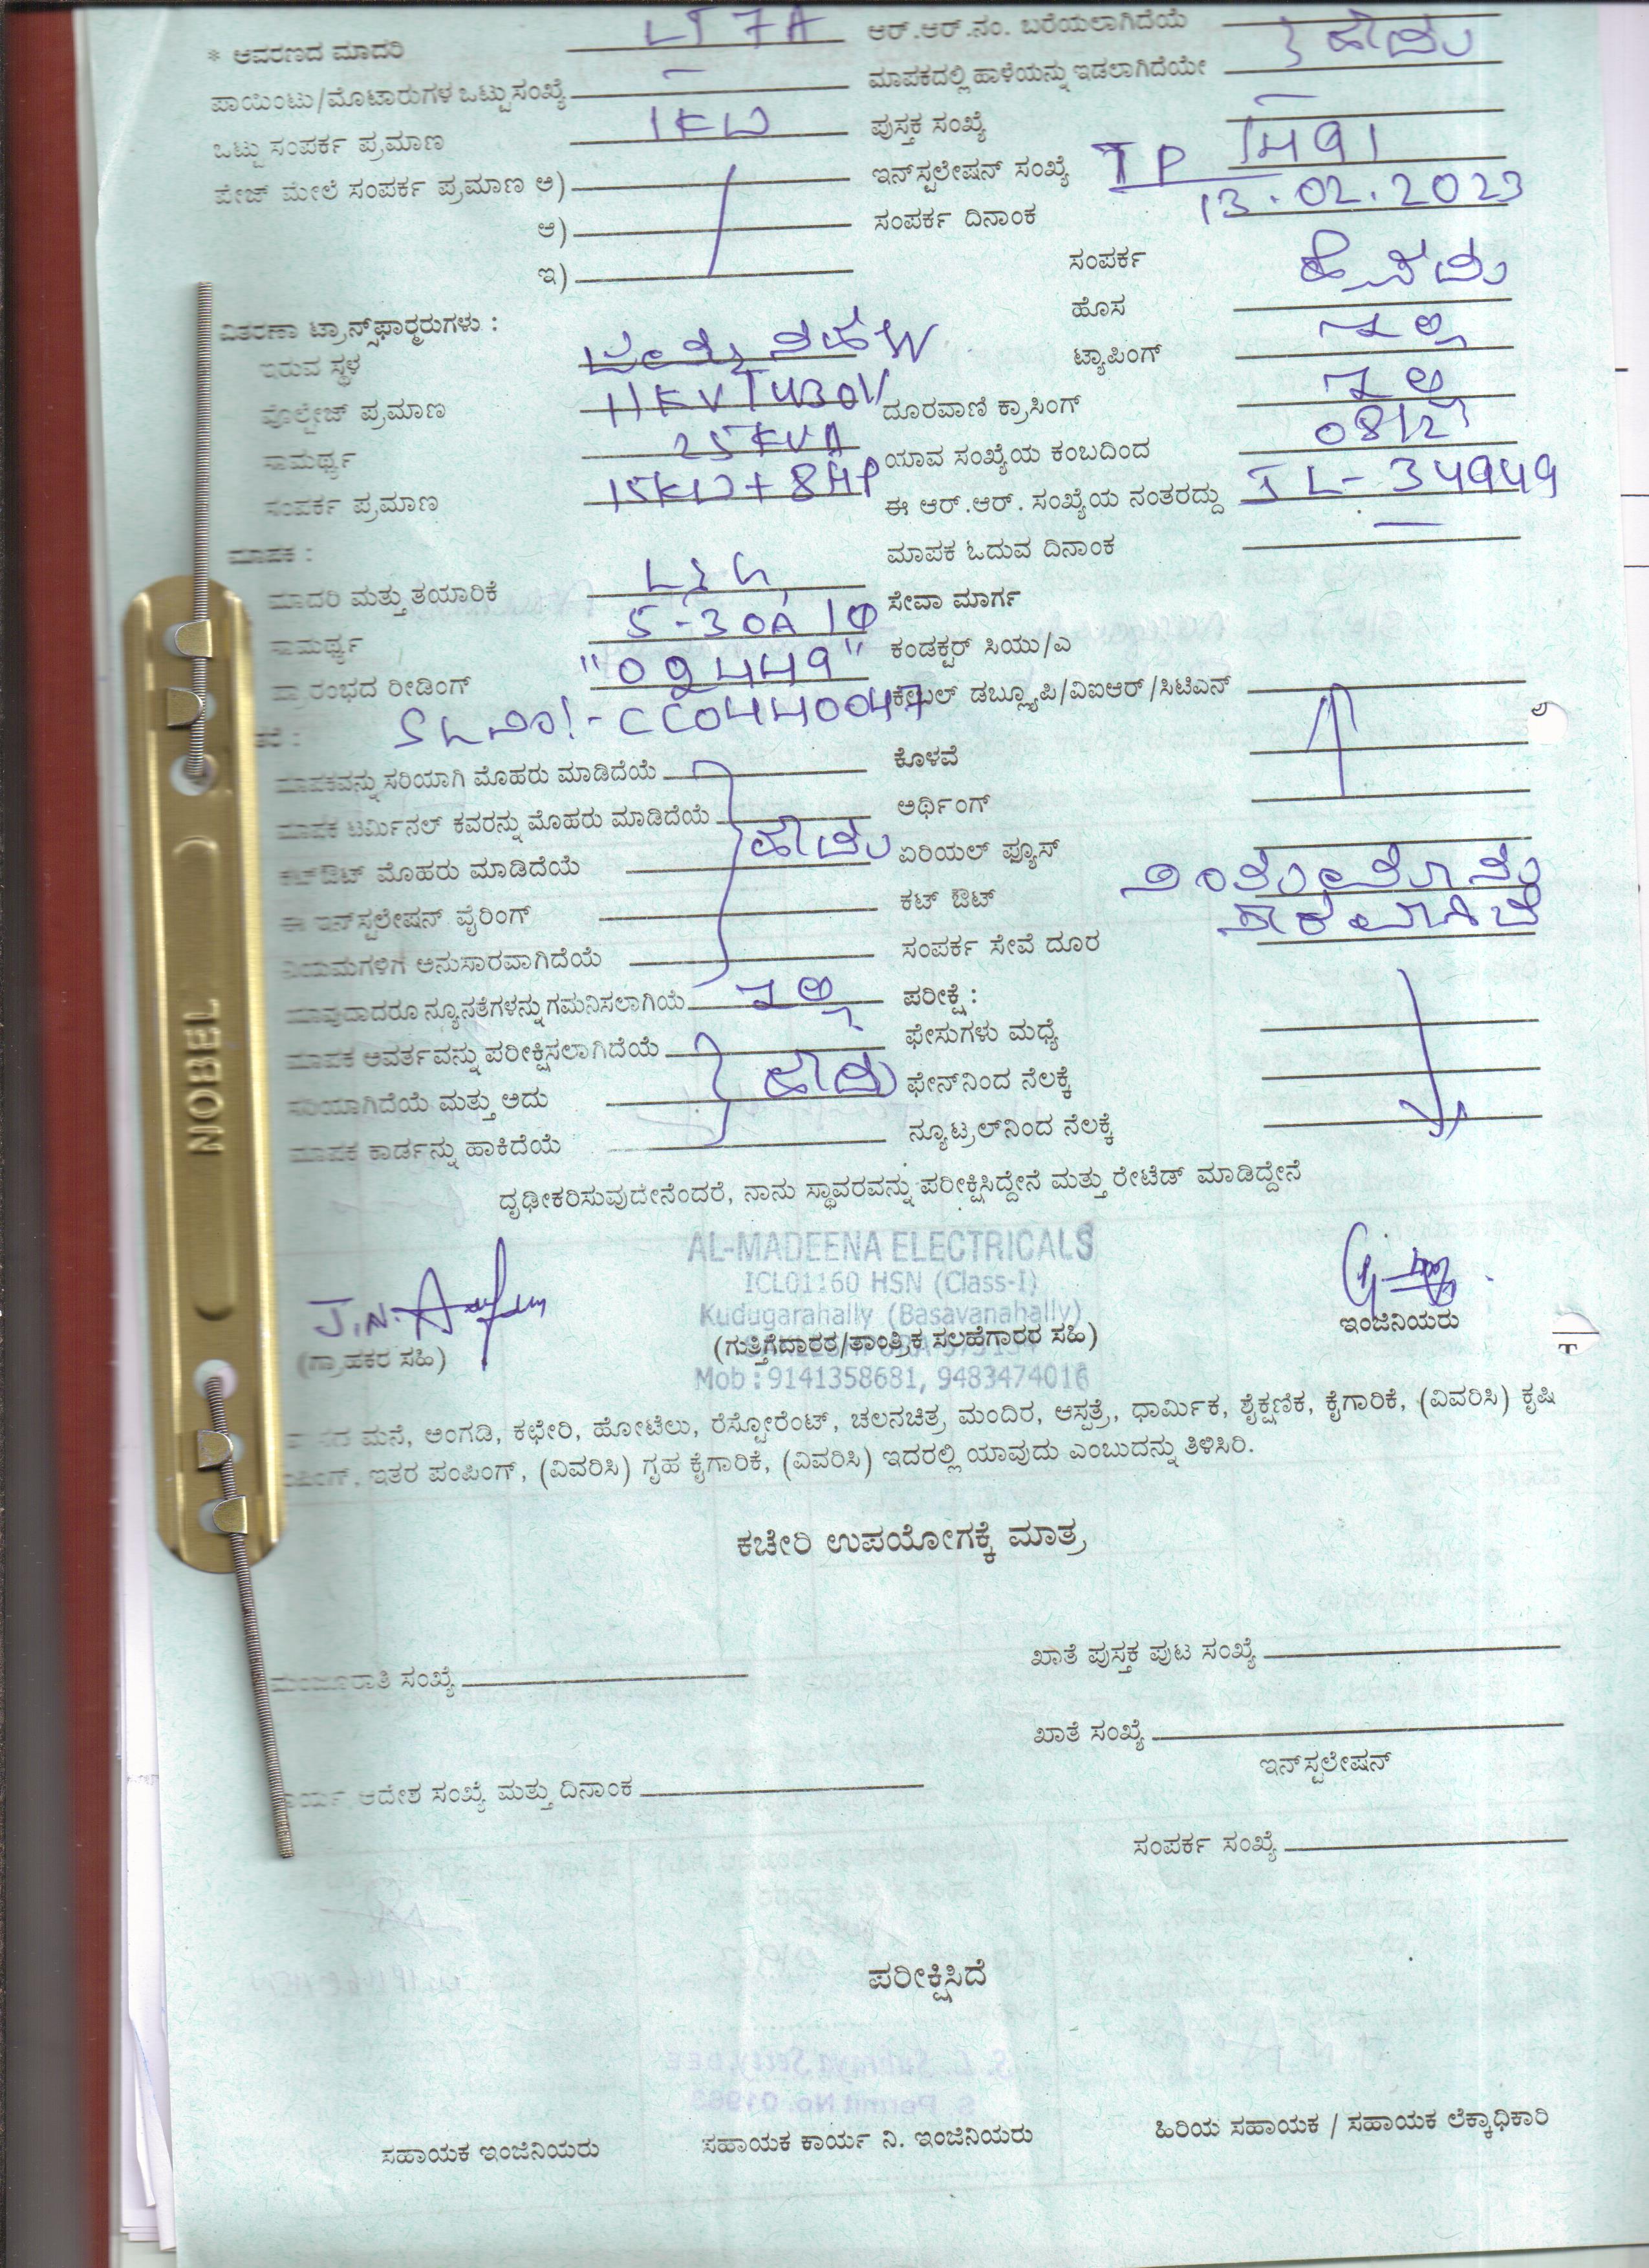 * ಆವರಣದ ಮಾದರಿ LT 7A ಆರ್.ಆರ್.ನಂ. ಬರೆಯಲಾಗಿದೆಯೆ
ಪಾಯಿಂಟು/ಮೊಟಾರುಗಳ ಒಟ್ಟುಸಂಖ್ಯೆ — ಮಾಪಕದಲ್ಲಿ ಹಾಳೆಯನ್ನು ಇಡಲಾಗಿದೆಯೇ } ಹೌದು
ಒಟ್ಟು ಸಂಪರ್ಕ ಪ್ರಮಾಣ 1KW ಪುಸ್ತಕ ಸಂಖ್ಯೆ —
ಪೇಜ್ ಮೇಲೆ ಸಂಪರ್ಕ ಪ್ರಮಾಣ ಅ) ಇನ್‌ಸ್ಟಲೇಷನ್ ಸಂಖ್ಯೆ TP
ಆ) ಸಂಪರ್ಕ ದಿನಾಂಕ 13.02.2023
ಇ) ಸಂಪರ್ಕ
ಹೊಸ
ವಿತರಣಾ ಟ್ರಾನ್ಸ್‌ಫಾರ್ಮರುಗಳು :
ಇರುವ ಸ್ಥಳ ಟ್ಯಾಪಿಂಗ್ ಇಲ್ಲ
ವೊಲ್ಟೇಜ್ ಪ್ರಮಾಣ 11KV ದೂರವಾಣಿ ಕ್ರಾಸಿಂಗ್ ಇಲ್ಲ
ಸಾಮರ್ಥ್ಯ 25KVA ಯಾವ ಸಂಖ್ಯೆಯ ಕಂಬದಿಂದ
ಸಂಪರ್ಕ ಪ್ರಮಾಣ 15KW+8HP ಈ ಆರ್.ಆರ್. ಸಂಖ್ಯೆಯ ನಂತರದ್ದು IL-34949
ಮಾಪಕ : ಮಾಪಕ ಓದುವ ದಿನಾಂಕ —
ಮಾದರಿ ಮತ್ತು ತಯಾರಿಕೆ ಸೇವಾ ಮಾರ್ಗ
ಸಾಮರ್ಥ್ಯ 5-30A 1Φ ಕಂಡಕ್ಟರ್ ಸಿಯು/ಎ
ಪ್ರಾರಂಭದ ರೀಡಿಂಗ್ "02449" ಕೇಬಲ್ ಡಬ್ಲ್ಯೂಪಿ/ವಿಐಆರ್/ಸಿಟಿಎನ್
SL NO:- CC0440047
ಮಾಪಕವನ್ನು ಸರಿಯಾಗಿ ಮೊಹರು ಮಾಡಿದೆಯೆ ಕೊಳವೆ
ಮಾಪಕ ಟರ್ಮಿನಲ್ ಕವರನ್ನು ಮೊಹರು ಮಾಡಿದೆಯೆ ಅರ್ಥಿಂಗ್
ಕಟ್‌ಔಟ್ ಮೊಹರು ಮಾಡಿದೆಯೆ ಹೌದು ಏರಿಯಲ್ ಫ್ಯೂಸ್
ಈ ಇನ್‌ಸ್ಟಲೇಷನ್ ವೈರಿಂಗ್ ಕಟ್ ಔಟ್
ನಿಯಮಗಳಿಗೆ ಅನುಸಾರವಾಗಿದೆಯೆ ಸಂಪರ್ಕ ಸೇವೆ ದೂರ
ಯಾವುದಾದರೂ ನ್ಯೂನತೆಗಳನ್ನು ಗಮನಿಸಲಾಗಿಯೆ ಇಲ್ಲ ಪರೀಕ್ಷೆ :
ಮಾಪಕ ಆವರ್ತವನ್ನು ಪರೀಕ್ಷಿಸಲಾಗಿದೆಯೆ ಫೇಸುಗಳು ಮಧ್ಯೆ
ಸರಿಯಾಗಿದೆಯೆ ಮತ್ತು ಅದು ಹೌದು ಫೇನ್‌ನಿಂದ ನೆಲಕ್ಕೆ
ಮಾಪಕ ಕಾರ್ಡನ್ನು ಹಾಕಿದೆಯೆ ನ್ಯೂಟ್ರಲ್‌ನಿಂದ ನೆಲಕ್ಕೆ
ದೃಢೀಕರಿಸುವುದೇನೆಂದರೆ, ನಾನು ಸ್ಥಾವರವನ್ನು ಪರೀಕ್ಷಿಸಿದ್ದೇನೆ ಮತ್ತು ರೇಟೆಡ್ ಮಾಡಿದ್ದೇನೆ
AL-MADEENA ELECTRICALS
ICL01160 HSN (Class-I)
Kudugarahally (Basavanahally)
J.N. ಇಂಜಿನಿಯರು
(ಗ್ರಾಹಕರ ಸಹಿ) (ಗುತ್ತಿಗೆದಾರರ/ತಾಂತ್ರಿಕ ಸಲಹೆಗಾರರ ಸಹಿ)
Mob : 9141358681, 9483474016
ಮನೆ, ಅಂಗಡಿ, ಕಛೇರಿ, ಹೋಟೆಲು, ರೆಸ್ಟೋರೆಂಟ್, ಚಲನಚಿತ್ರ ಮಂದಿರ, ಆಸ್ಪತ್ರೆ, ಧಾರ್ಮಿಕ, ಶೈಕ್ಷಣಿಕ, ಕೈಗಾರಿಕೆ, (ವಿವರಿಸಿ) ಕೃಷಿ
ಇತರ ಪಂಪಿಂಗ್, (ವಿವರಿಸಿ) ಗೃಹ ಕೈಗಾರಿಕೆ, (ವಿವರಿಸಿ) ಇದರಲ್ಲಿ ಯಾವುದು ಎಂಬುದನ್ನು ತಿಳಿಸಿರಿ.
ಕಚೇರಿ ಉಪಯೋಗಕ್ಕೆ ಮಾತ್ರ
ಮಂಜೂರಾತಿ ಸಂಖ್ಯೆ ಖಾತೆ ಪುಸ್ತಕ ಪುಟ ಸಂಖ್ಯೆ
ಖಾತೆ ಸಂಖ್ಯೆ
ಇನ್‌ಸ್ಟಲೇಷನ್
ಆದೇಶ ಸಂಖ್ಯೆ ಮತ್ತು ದಿನಾಂಕ
ಸಂಪರ್ಕ ಸಂಖ್ಯೆ
ಪರೀಕ್ಷಿಸಿದೆ
ಸಹಾಯಕ ಇಂಜಿನಿಯರು ಸಹಾಯಕ ಕಾರ್ಯ ನಿ. ಇಂಜಿನಿಯರು ಹಿರಿಯ ಸಹಾಯಕ / ಸಹಾಯಕ ಲೆಕ್ಕಾಧಿಕಾರಿ
NOBEL